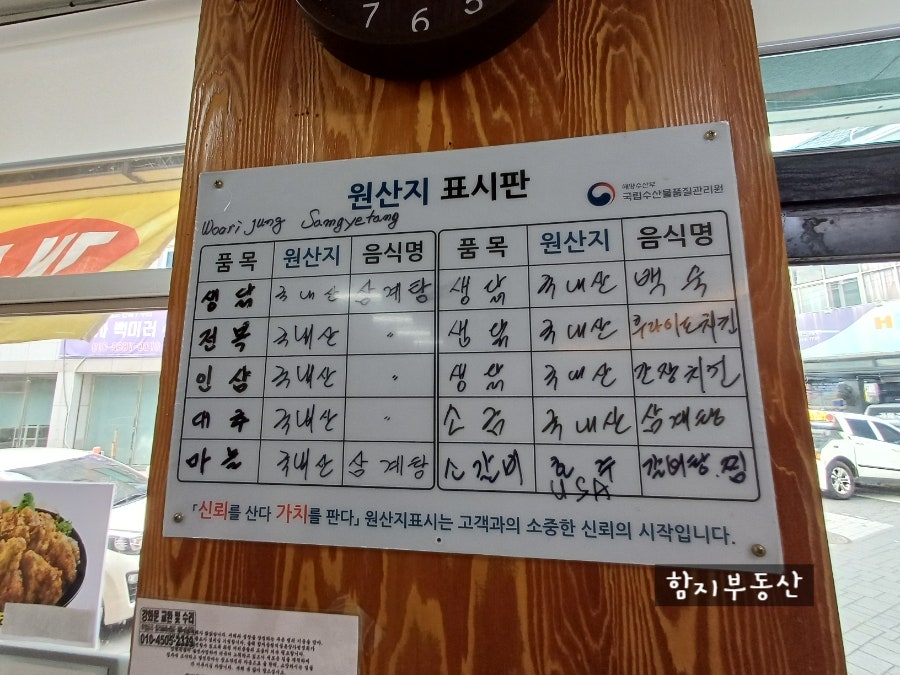 7 6 5
원산지 표시판
해양수산부
국립수산물품질관리원
Woori jung Samgyetang
품목 원산지 음식명 품목 원산지 음식명
생닭 국내산 삼계탕 생닭 국내산 백숙
전복 국내산 〃 생닭 국내산 후라이드치킨
인삼 국내산 〃 생닭 국내산 간장치킨
대추 국내산 〃 소금 국내산 삼계탕
마늘 국내산 삼계탕 소갈비 호주 갈비탕.찜
USA
「신뢰를 산다 가치를 판다」 원산지표시는 고객과의 소중한 신뢰의 시작입니다.
함지부동산
강화문 교환 및 수리
010-4505-2320
백미러
H